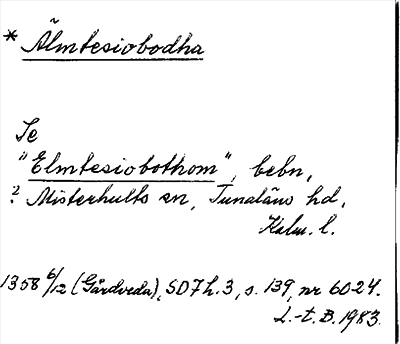 * Älmtesiobodha
Se
"Elmtesiobothom", bebn,
? Misterhults sn, Tunaläns hd,
Kalm. l.
1358 6/12 (Gårdveda), SD 7 h. 3, s. 139, nr 6024.
L.-t. B. 1983.